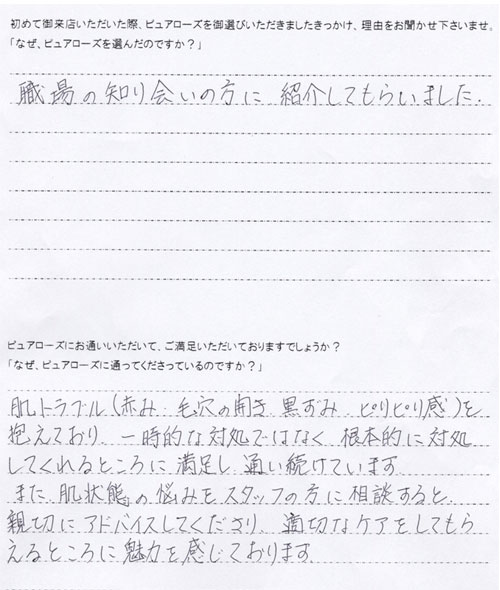 初めて御来店いただいた際、ピュアローズを御選びいただきましたきっかけ、理由をお聞かせ下さいませ。
「なぜ、ピュアローズを選んだのですか？」
職場の知り会いの方に 紹介してもらいました.
ピュアローズにお通いいただいて、ご満足いただいておりますでしょうか？
「なぜ、ピュアローズに通ってくださっているのですか？」
肌トラブル(赤み 毛穴の開き 黒ずみ ピリピリ感)を
抱えており、一時的な対処ではなく 根本的に対処
してくれるところに満足し 通い続けています
また 肌状態の悩みをスタッフの方に相談すると、
親切にアドバイスしてくださり、適切なケアをしてもら
えるところに魅力を感じております.